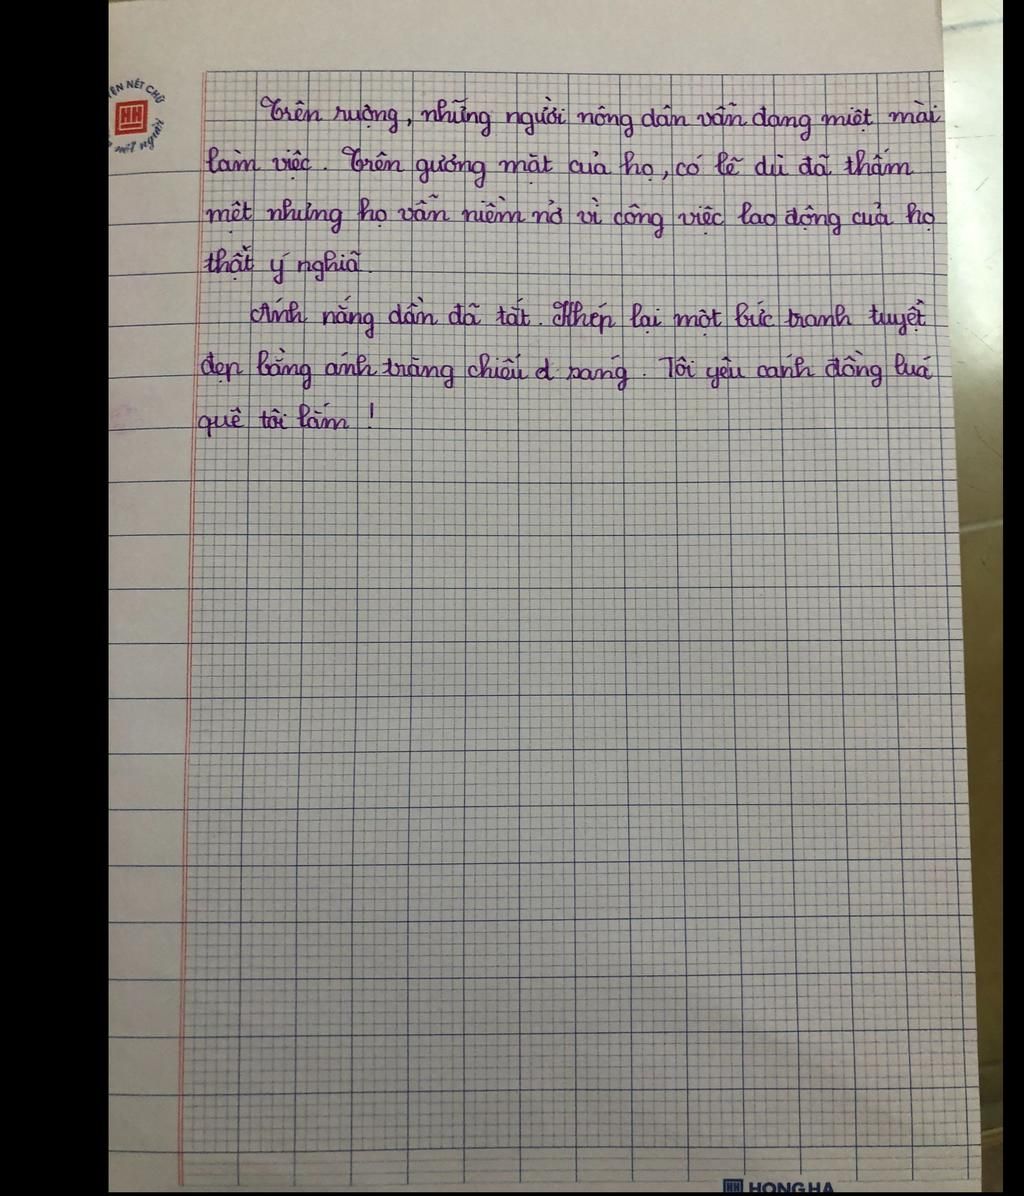 ỆN NÉT CHỮ
HH
nết người
Trên ruộng, những người nông dân vẫn đang miệt mài
làm việc. Trên gương mặt của họ, có lẽ dù đã thấm
mệt nhưng họ vẫn niềm nở vì công việc lao động của họ
thật ý nghĩa.
Ánh nắng dần đã tắt. Khép lại một bức tranh tuyệt
đẹp bằng ánh trăng chiếu d sáng. Tôi yêu cánh đồng lúa
quê tôi lắm !
HH HONG HA